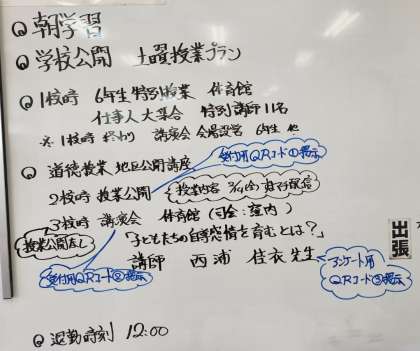 朝学習
学校公開 土曜授業プラン
1校時 6年生 特別授業 体育館
仕事人大集合 特別講師11名
※1校時 終わり 講演会 会場設営 6年生 他
受付用QRコード①掲示
道徳授業地区公開講座
2校時 授業公開
授業内容
3校時 講演会 体育館(司会:室内)
授業公開なし
「子どもたちの自尊感情を育むとは?」
講師 西浦 佳衣 先生
受付用QRコード②掲示
アンケート用
QRコード③掲示
出張
退勤時刻 12:00